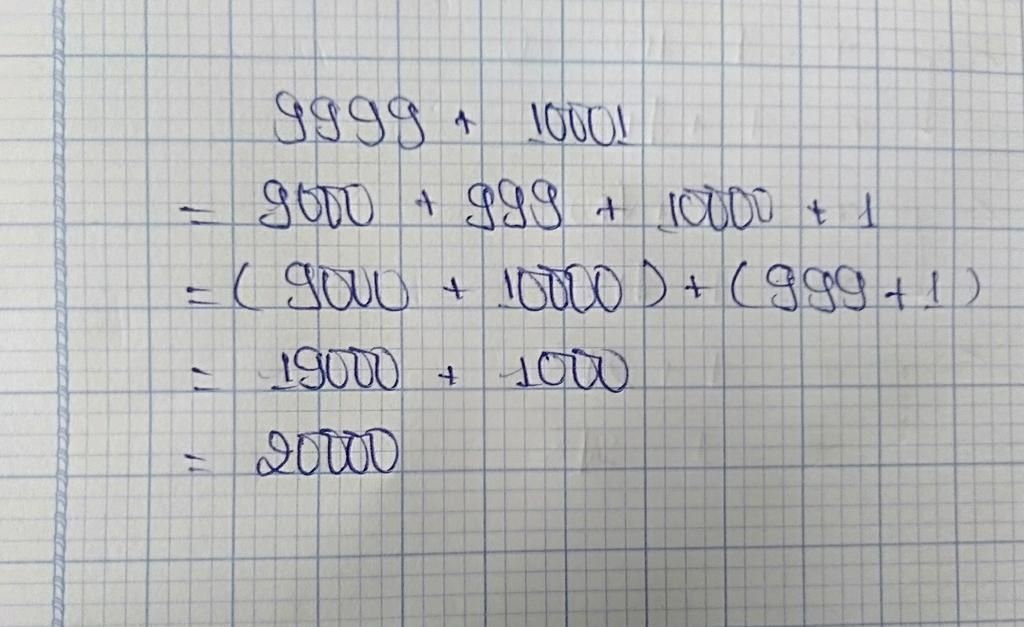 9999 + 10001
= 9000 + 999 + 10000 + 1
= ( 9000 + 10000 ) + ( 999 + 1 )
= 19000 + 1000
= 20000